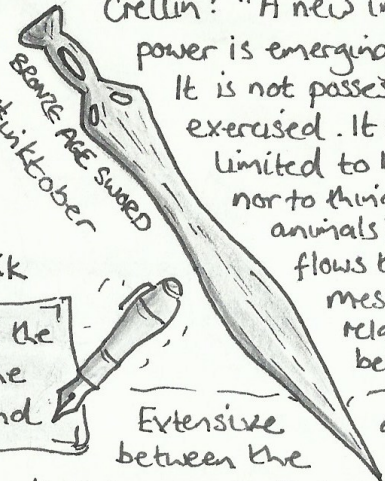 Crellin? "A new
power is emerging
It is not posses
exercised. It
limited to
nor to thin
animals
flows
mes
rela
be
BRONZE AGE SWORD
the
nd
Extensive
between the